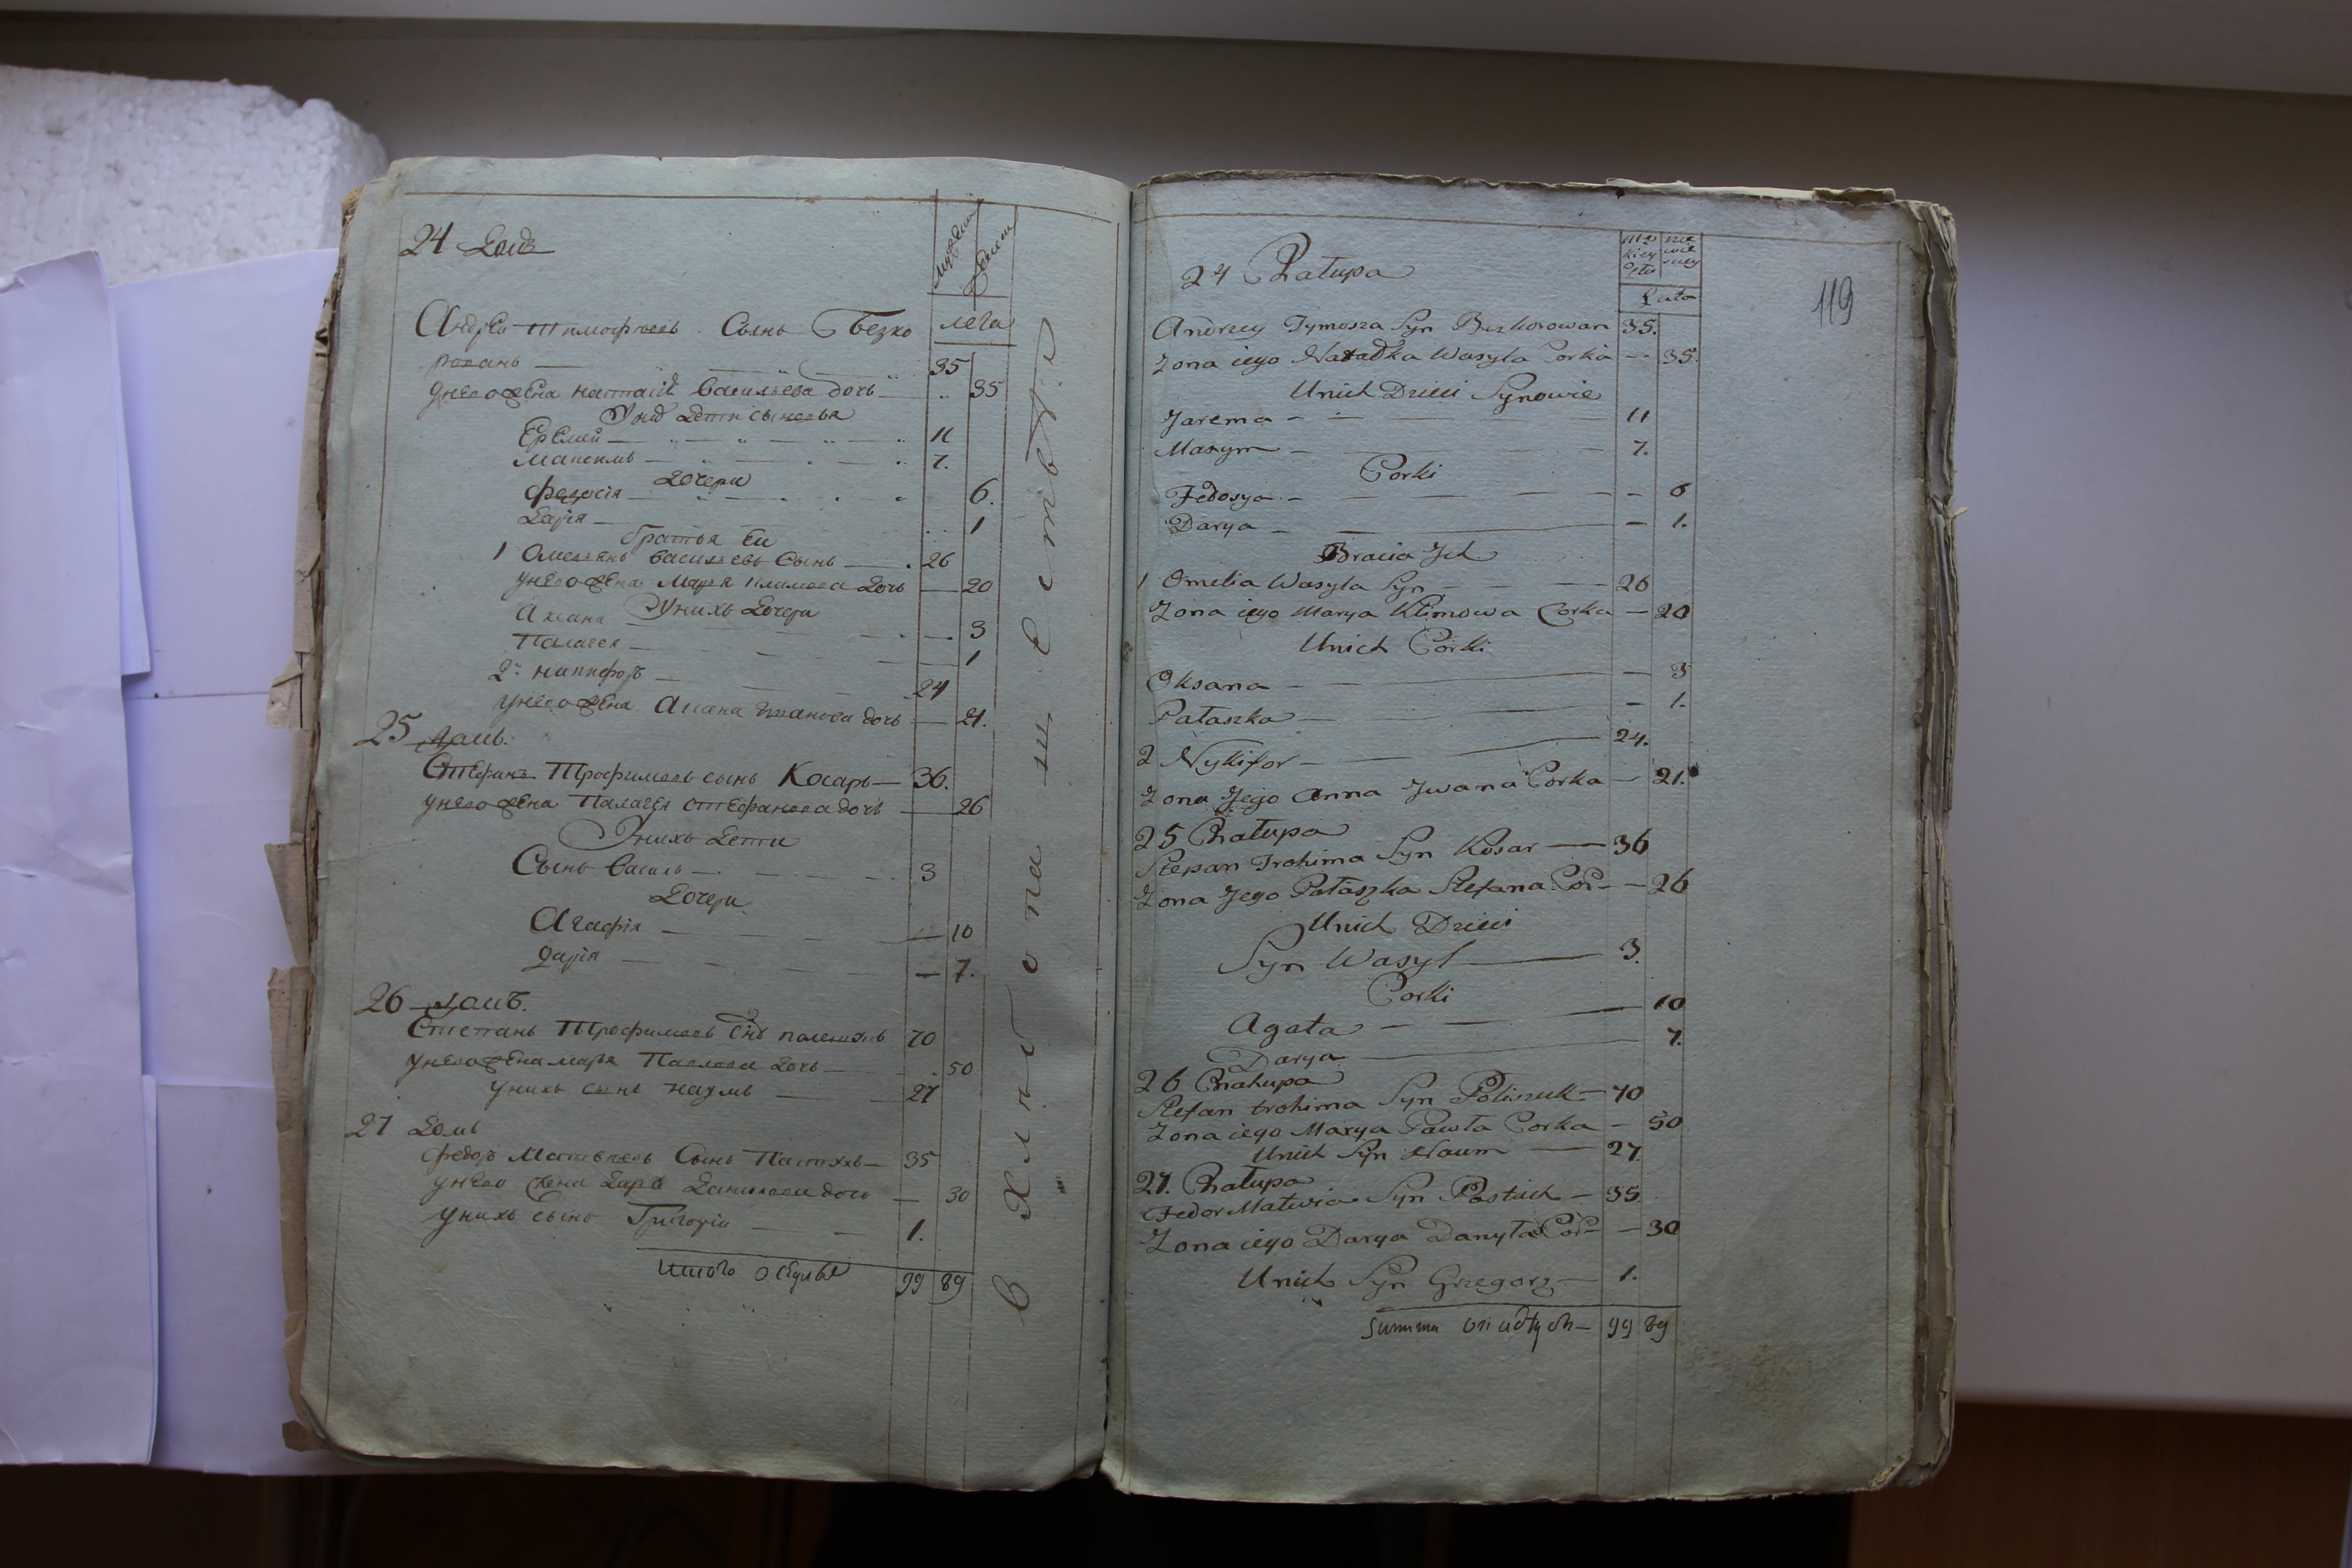 24 Домъ
мужеск
женск
лета
Андрей Тимофеевъ Сынъ Безко
рованъ — 35
унего жена наталіѣ Васильева дочь — 35
Унихъ Дети сыновья
Еремей — 11
Максимъ — 7.
Дочери
Федосія — 6.
Дарія — 1
братья Ей
1 Омельянъ Васильевъ Сынъ — 26
унего жена Марья климова Дочь — 20
Унихъ Дочери
Аксана — 3
Палагея — 1
2. никифоръ — 24
унего жена Анана Иванова дочь — 21.
25 домъ.
Стефанъ Трофимовъ сынъ Косаръ — 36.
унего жена Палагея стефанова дочь — 26
Унихъ Дети
Сынъ Василь — 3
Дочери
Агафія — 10
Дарія — 7.
26 домъ.
Степанъ Трофимовъ Снъ полещукъ 70
унего жена марья Павлова Дочь — 50
унихъ сынъ наумъ — 27
27 Домъ
Федоръ Матвѣевъ Сынъ Пастухъ — 35
унего Жена Дарья Данилова дочь — 30
унихъ сынъ Григорій — 1.
Итого 99 89
119
24 Chałupa
Lata
Andrzey Tymosza Syn Bezkorowan 35.
Zona iego Natałka Wasyla Corka — 35.
Unich Dzieci Synowie
Jarema — 11
Maxym — 7.
Corki
Fedosya — 6
Darya — 1.
Bracia Jch
1 Omelia Wasyla Syn — 26
Zona iego Marya Klimowa Corka — 20
Unich Corki
Oksana — 3
Pałaszka — 1.
2 Nykifor — 24.
Zona Jego Anna Jwana Corka — 21.
25 Chałupa
Stepan Trohima Syn Kosar — 36
Zona Jego Pałaszka Stefana Cor — 26
Unich Dzieci
Syn Wasyl — 3.
Corki
Agata — 10
Darya — 7.
26 Chałupa
Stefan trohima Syn Poliszuk — 70
Zona iego Marya Pawła Corka — 50
Unich Syn Naum — 27.
27. Chałupa
Fedor Matwia Syn Pastuch — 35.
Zona iego Darya Danyła Cor — 30
Unich Syn Grzegorz — 1.
Summa osiadłych — 99 89